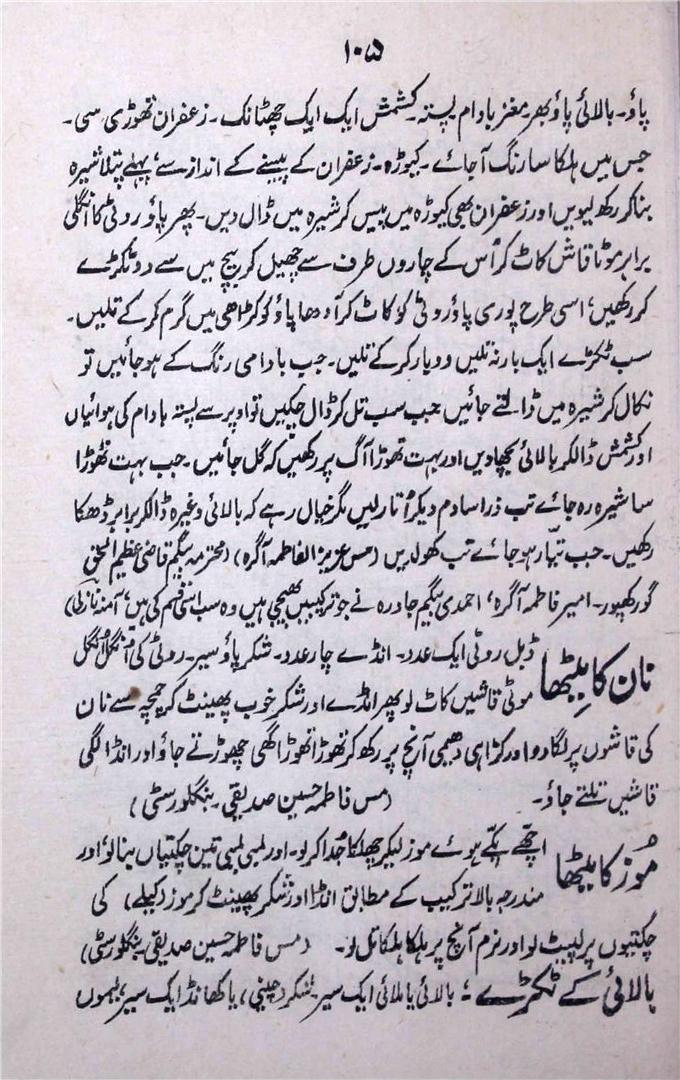 ۱۰۵
پاؤ۔ بالائی پاؤ بھر۔ مغز بادام پستہ۔ کشمش ایک ایک چھٹانک۔ زعفران تھوڑی سی۔
جس میں ہلکا سا رنگ آجائے۔ کیوڑہ۔ زعفران کے پیسنے کے انداز سے، پہلے پتلا شیرہ
بنا کر رکھ لیویں اور زعفران بھی کیوڑہ میں پیس کر شیرہ میں ڈال دیں۔ پھر پاؤ روٹی کا انگلی
برابر موٹا قاش کاٹ کر اُس کے چاروں طرف سے چھیل کر بیچ میں سے دو ٹکڑے
کر رکھیں، اسی طرح پوری پاؤ روٹی کو کاٹ کر آدھا پاؤ کو کڑاھی میں گرم کر کے تلیں۔
سب ٹکڑے ایک بار نہ تلیں دو بار کر کے تلیں۔ جب بادامی رنگ کے ہو جائیں تو
نکال کر شیرہ میں ڈالتے جائیں جب سب تل کر ڈال چکیں تو اوپر سے پستہ بادام کی ہوائیاں
اور کشمش ڈالکر بالائی بچھادیں اور بہت تھوڑا آگ پر رکھیں کہ گل جائیں۔ جب بہت تھوڑا
سا شیرہ رہ جائے تب ذرا سا دم دیکر اُتار لیں مگر خیال رہے کہ بالائی وغیرہ ڈالکر برابر ڈھکا
رکھیں۔ جب تیار ہو جائے تب کھولدیں (مس عزیز الفاطمہ آگرہ) (محترمہ بیگم قاضی عظیم الحق
گورکھپور۔ امیر فاطمہ آگرہ، احمدی بیگم جاورہ نے جو ترکیبیں بھیجی ہیں وہ سب اسی قسم کی ہیں، آمنہ نازلی)
نان کا میٹھا ڈبل روٹی ایک عدد۔ انڈے چار عدد۔ شکر پاؤ سیر۔ روٹی کی انگل انگل
موٹی قاشیں کاٹ لو پھر انڈے اور شکر خوب پھینٹ کر چمچہ سے نان
کی قاشوں پر لگا دو اور کڑاہی دھیمی آنچ پر رکھ کر تھوڑا تھوڑا گھی چھوڑتے جاؤ اور انڈا لگی
قاشیں تلتے جاؤ۔ (مس فاطمہ حسین صدیقی۔ بنگلور سٹی)
مُوز کا میٹھا اچھے پکے ہوئے موز لیکر چھلکا جُدا کر لو۔ اور لمبی لمبی تین چکتیاں بنا لو اور
مندرجہ بالا ترکیب کے مطابق انڈا اور شکر پھینٹ کر موز (کیلے) کی
چکتیوں پر لپیٹ لو اور نرم آنچ پر ہلکا ہلکا تل لو۔ (مس فاطمہ حسین صدیقی۔ بنگلور سٹی)
بالائی کے ٹکڑے :۔ بالائی یا ملائی ایک سیر۔ شکر (چینی)، یا کھانڈ ایک سیر، لیموں